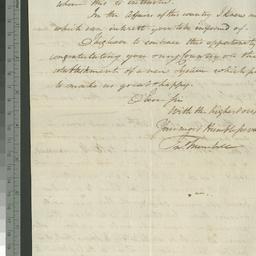 whom this is entrusted.
In the Affairs of this country I know no
which can interest you to be informed of.
I beg leave to embrace this opportunity
congratulating you & my Country on the
establishment of a new System which p
to make us great & happy.
I have Sir
With the highest
Your most Humble Serva
Jno Trumbull